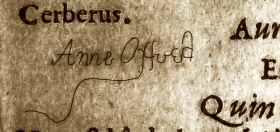 Cerberus.
Aur
Anne Offued
E
Quin